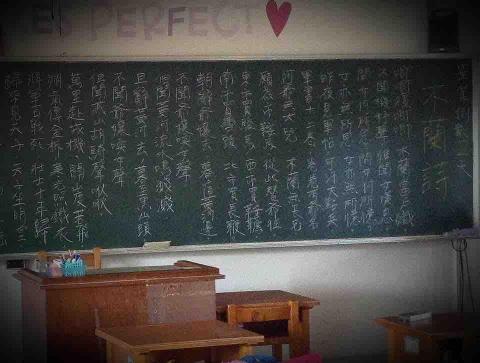 ES PERFECT
木蘭詩
唧唧復唧唧 木蘭當戶織
不聞機杼聲 唯聞女嘆息
問女何所思 問女何所憶
女亦無所思 女亦無所憶
昨夜見軍帖 可汗大點兵
軍書十二卷 卷卷有爺名
阿爺無大兒 木蘭無長兄
願為市鞍馬 從此替爺征
東市買駿馬 西市買鞍韉
南市買轡頭 北市買長鞭
朝辭爺孃去 暮宿黃河邊
不聞爺孃喚女聲
但聞黃河流水鳴濺濺
旦辭黃河去 暮至黑山頭
不聞爺孃喚女聲
但聞燕山胡騎聲啾啾
萬里赴戎機 關山度若飛
朔氣傳金柝 寒光照鐵衣
將軍百戰死 壯士十年歸
歸來見天子 天子坐明堂